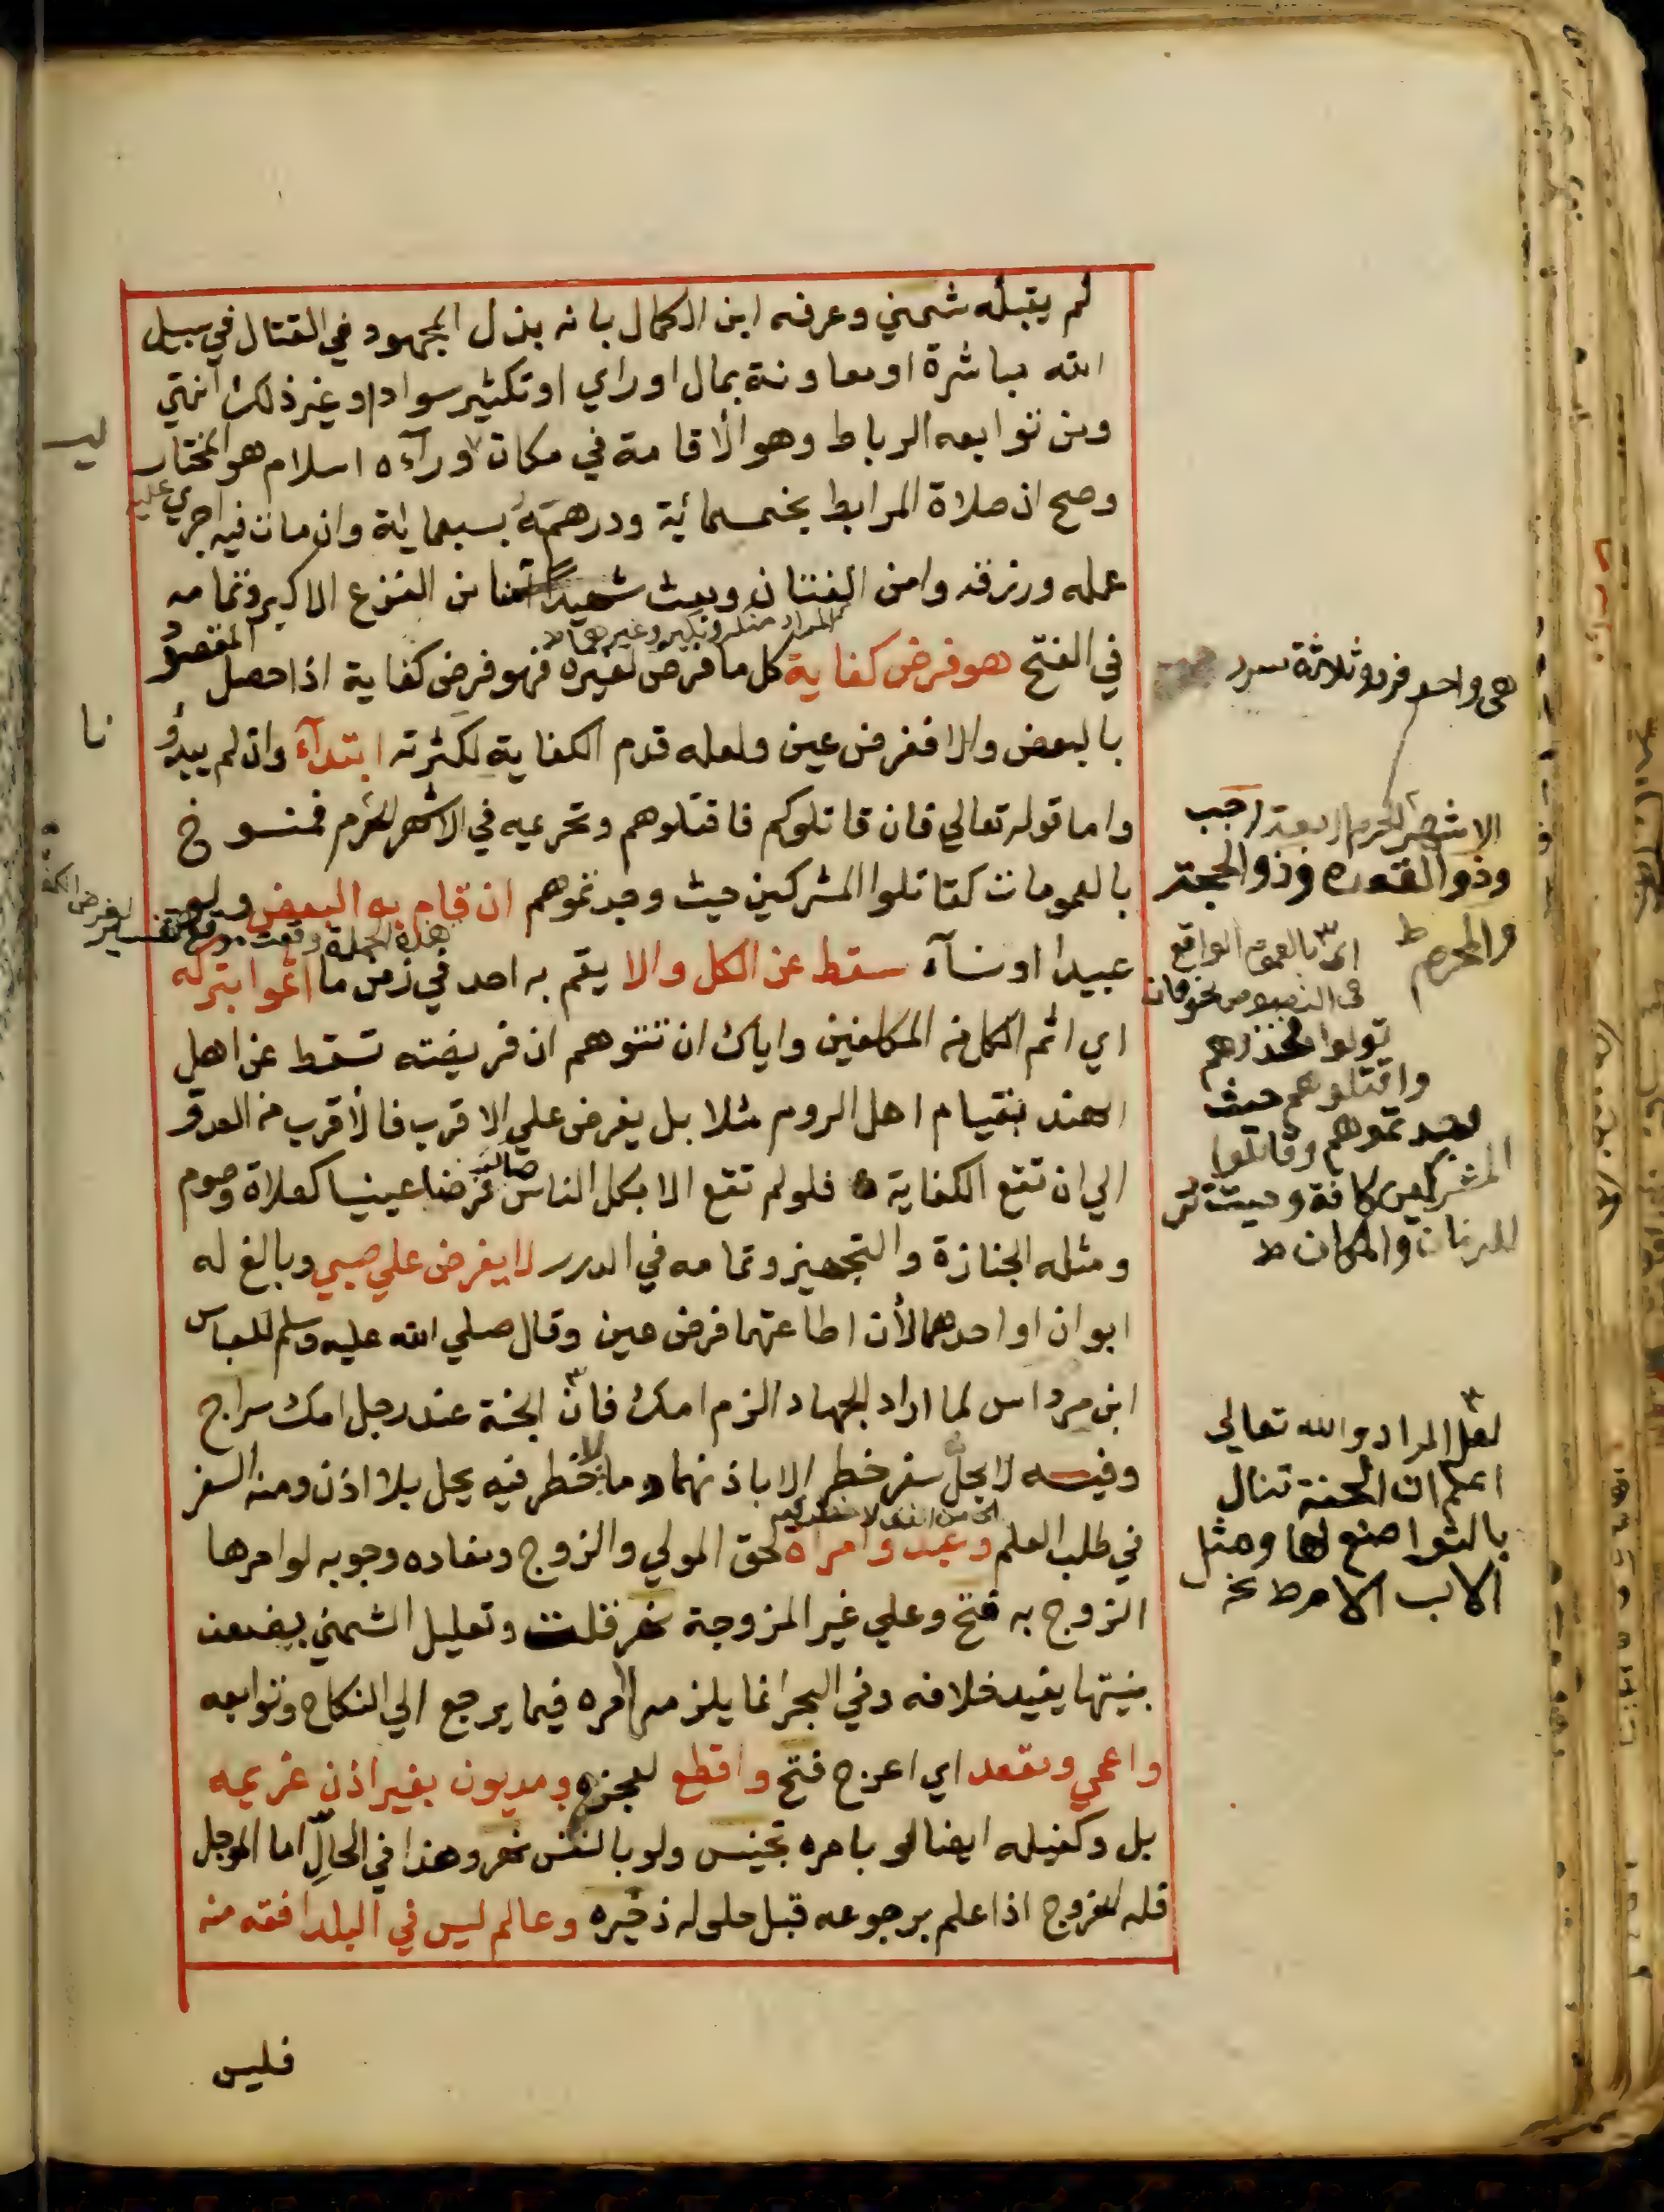 لم يقبله شمني وعرفه ابن الكمال بانه بذل المجهود في القتال في سبيل
الله مباشرة او معاونة بمال او راي او تكثير سواد او غير ذلك انتهي
ومن توابعه الرباط وهو الاقامة في مكان ورآءه اسلام هو المختار
وصح ان صلاة المرابط بخمسمائية ودرهمه بسبعماية وان مات فيه اجري عليه
عمله ورزقه وامن الفتان وبعث شهيدًا آمنا من الفزع الاكبر وتمامه
المراد منكر ونكير وغيرهما ط
في الفتح هو فرض كفاية كل ما فرض لغيره فهو فرض كفاية اذا حصل المقصود
بالبعض والا ففرض عين ولعله قدم الكفاية لكثرته ابتدآء وان لم يبدؤ
واما قوله تعالي فان قاتلوكم فاقتلوهم وتحريمه في الاشهر الحرم فمنسوخ
بالعمومات كقاتلوا المشركين حيث وجدتموهم ان قام به البعض ولو
هذه الجملة وقعت موقع تفسير لفرض
عبيدا او نسآء سقط عن الكل والا يقم به احد في زمن ما اثموا بتركه
اي اثم الكل من المكلفين واياك ان تتوهم ان فريضته تسقط عن اهل
الهند بقيام اهل الروم مثلا بل يفرض علي الاقرب فالأقرب من العدو
الي ان تقع الكفاية فلو لم تقع الا بكل الناس صار فرضا عينيا كصلاة وصوم
ومثله الجنازة والتجهيز وتمامه في الدرر لا يفرض علي صبي وبالغ له
ابوان او احدهما لأن اطاعتهما فرض عين وقال صلي الله عليه وسلم للعباس
ابن مرداس لما اراد الجهاد الزم امك فان الجنة عند رجل امك سراج
وفيه لا يحل سفر خطر الا باذنهما وما لا خطر فيه يحل بلا اذن ومنه السفر
في طلب العلم وعبد وامراة لحق المولي والزوج ومفاده وجوبه لو امرها
الزوج به فتح وعلي غير المزوجة نهر قلت وتعليل الشمني بضعف
بنيتها يفيد خلافه وفي البحر انما يلزمها امره فيما يرجع الي النكاح وتوابعه
واعمي ومقعد اي اعرج فتح واقطع لعجزهم ومديون بغير اذن غريمه
بل وكفيله ايضا لو بامره تجنيس ولو بالنفس نهر وهذا في الحالّ اما الموجل
فله الخروج اذا علم برجوعه قبل حلوله ذخيره وعالم ليس في البلد افقه منه
فليس
هي واحد فرد وثلاثة سرد
الاشهر الحرم اربعة رجب
وذو القعده وذو الحجة
والمحرم ط
اي بالعموم الواقع
في النصوص نحو فان
تولوا فخذوهم
واقتلوهم حيث
وجدتموهم وقاتلوا
المشركين كافة وحيث
للزمان والمكان ط
لعل المراد والله تعالي
اعلم ان الجنة تنال
بالتواضع لها ومثل
الاب الام ط
نا